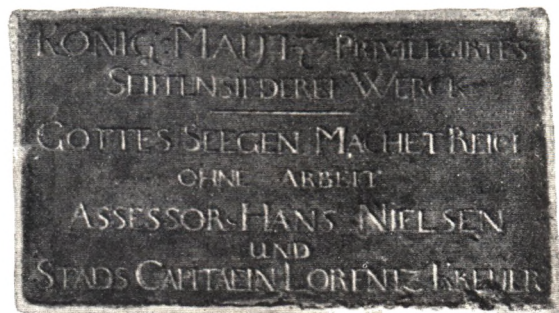 KÖNIG: MAIJT: PRIVILEGIRTES
SEIFFENSIEDEREI WERCK
GOTTES SEEGEN MACHET REICH
OHNE ARBEIT
ASSESSOR HANS NIELSEN
UND
STADS CAPITAEIN LORENTZ KREYER